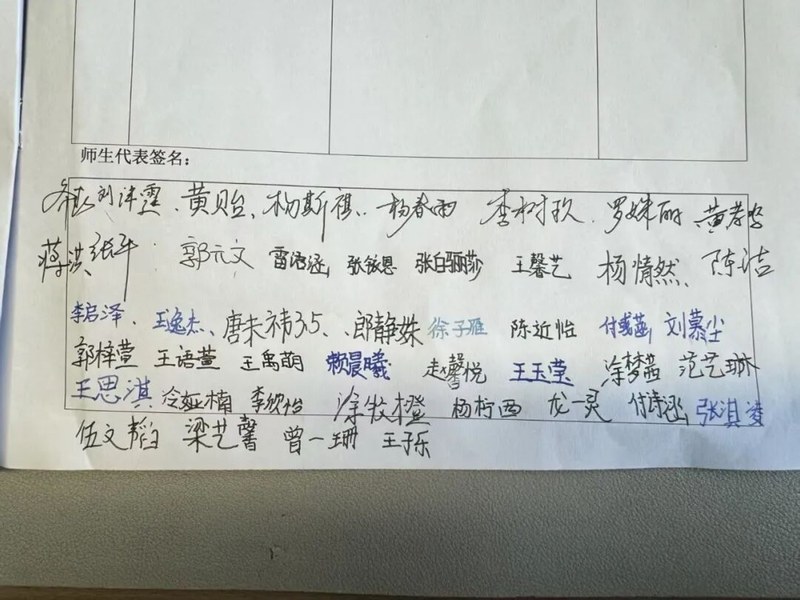 师生代表签名：
黄贻 杨斯祺 杨春雨 李树玖 罗姝丽 黄孝
蒋洪 张华 郭元文 雷洛涵 张铱恩 张白骊莎 王馨艺 杨情然、陈洁
李启泽、王逸杰、唐未祎 郎静姝 徐子雁 陈近怡 付彧菡 刘慕尘
郭梓萱 王语萱 王禹萌 赖晨曦 赵馨悦 王玉莹 涂梦茹 范艺琳
王思淇 冷娅楠 李欣怡 涂牧橙 杨柠西 龙一灵 付诗涵 张淇凌
伍文韬 梁艺馨 曾一珊 王子乐